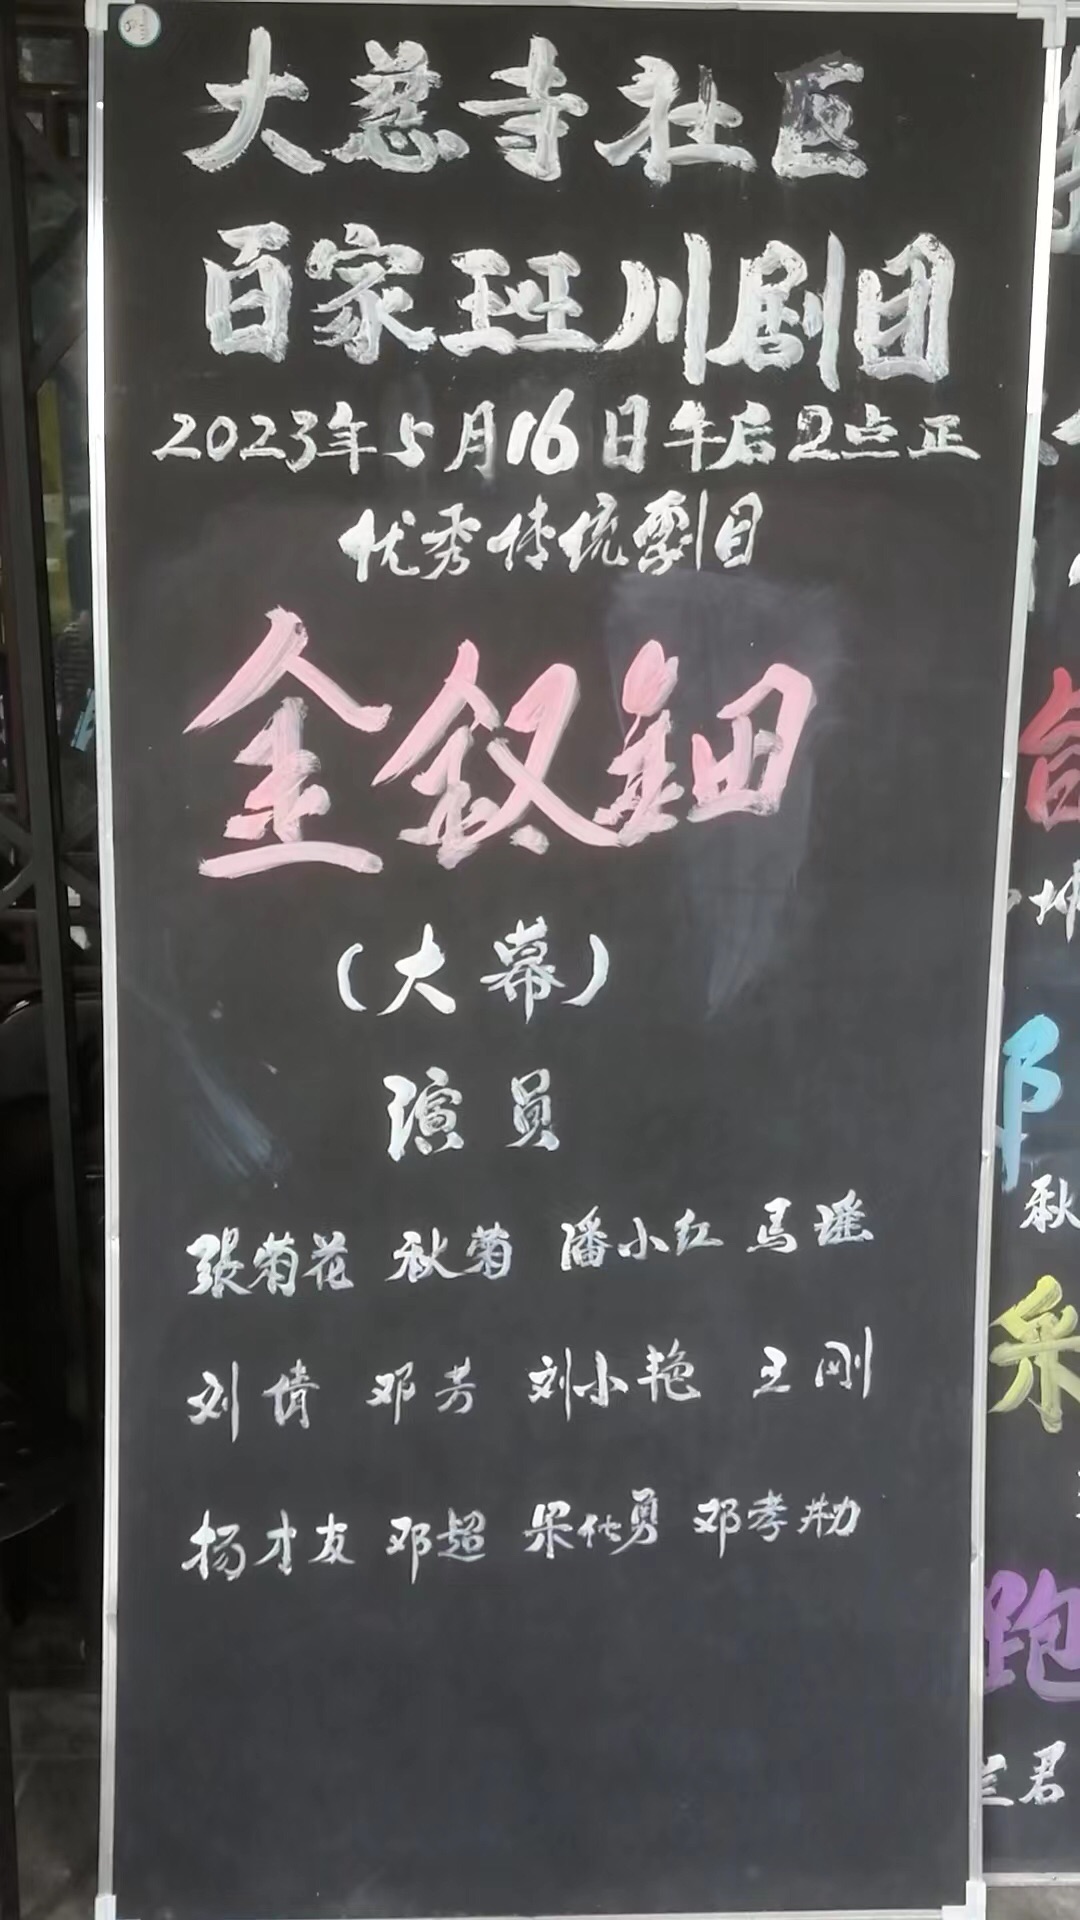 大慈寺社区
百家班川剧团
2023年5月16日午后2点正
优秀传统剧目
金钗钿
（大幕）
演员
張菊花 秋菊 潘小红 马瑶
刘倩 邓芳 刘小艳 王刚
杨才友 邓超 梁仕勇 邓孝勅
坤
秋
采
跑
兰君